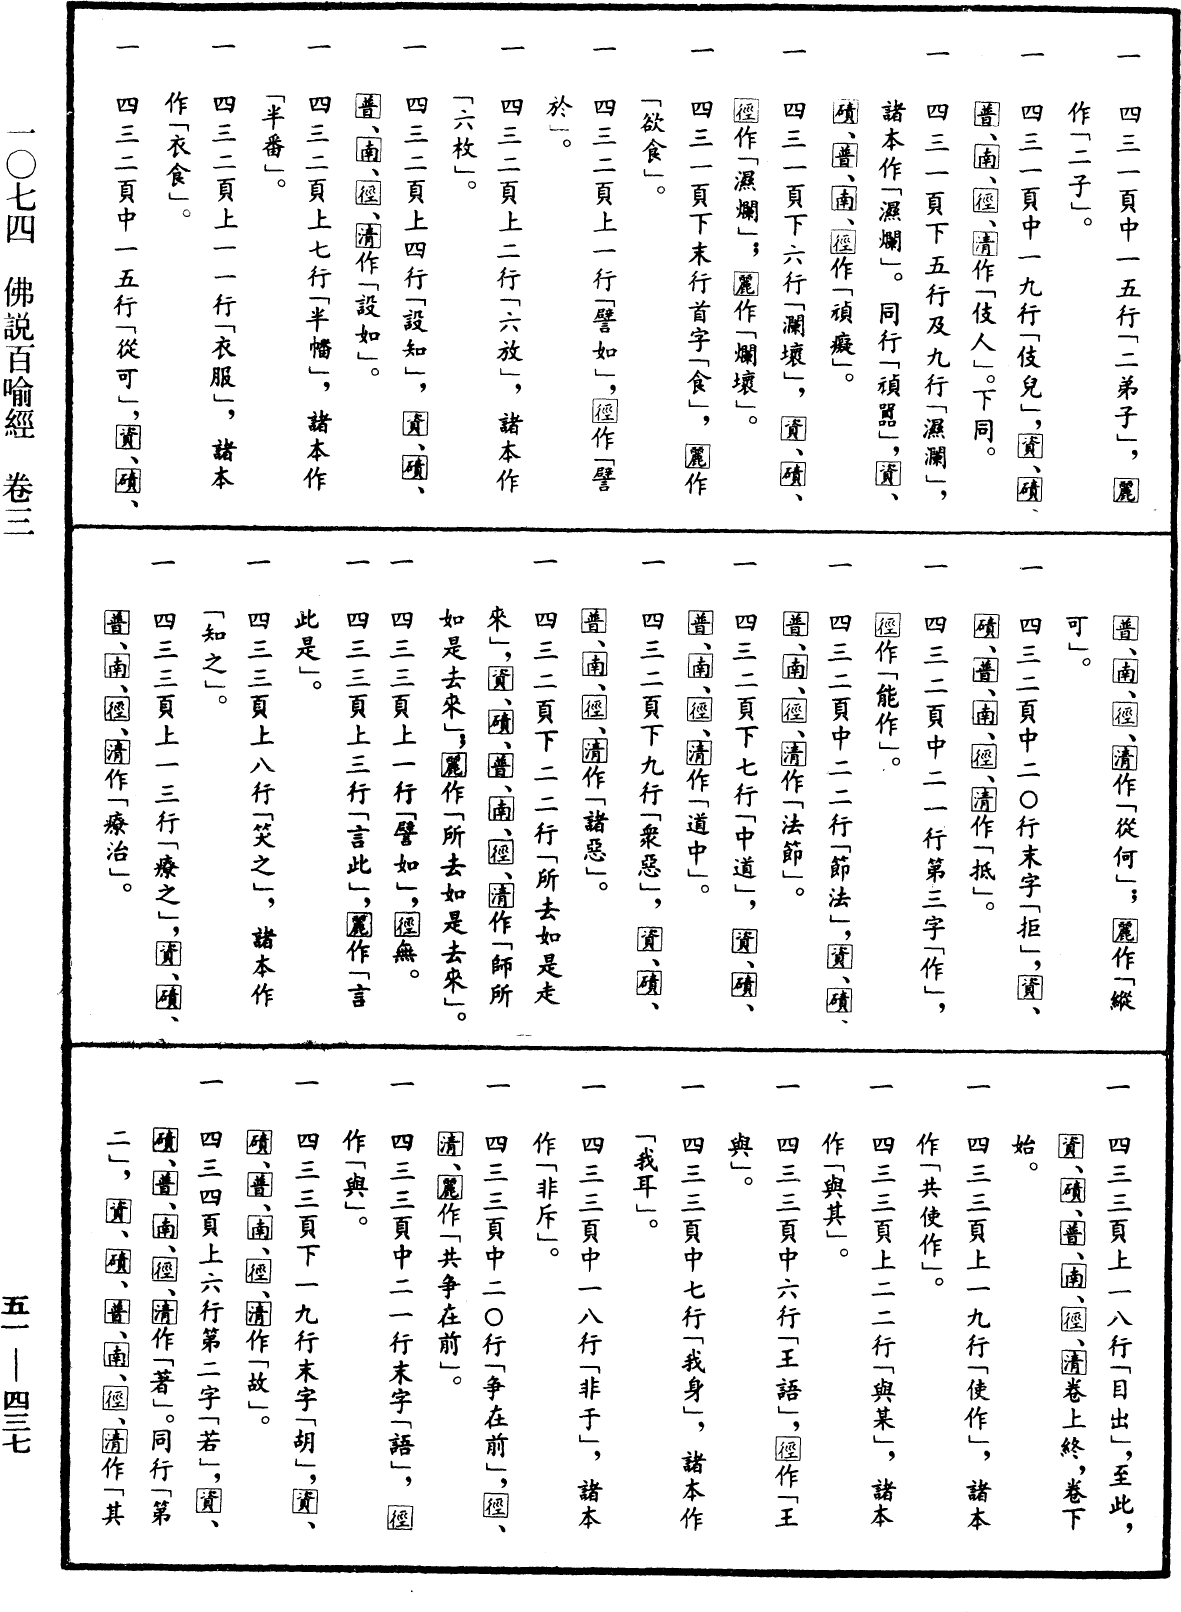 一　四三一頁中一五行「二弟子」，麗
作「二子」。
一　四三一頁中一九行「伎兒」，資、磧、
普、南、徑、清作「伎人」。下同。
一　四三一頁下五行及九行「濕瀾」，
諸本作「濕爛」。同行「禎嚚」，資、
磧、普、南、徑作「禎癡」。
一　四三一頁下六行「瀾壞」，資、磧、
徑作「濕爛」；麗作「爛壞」。
一　四三一頁下末行首字「食」，麗作
「欲食」。
一　四三二頁上一行「譬如」，徑作「譬
於」。
一　四三二頁上二行「六放」，諸本作
「六枚」。
一　四三二頁上四行「設知」，資、磧、
普、南、徑、清作「設如」。
一　四三二頁上七行「半幡」，諸本作
「半番」。
一　四三二頁上一一行「衣服」，諸本
作「衣食」。
一　四三二頁中一五行「從可」，資、磧、
普、南、徑、清作「從何」；麗作「縱
可」。
一　四三二頁中二〇行末字「拒」，資、
磧、普、南、徑、清作「抵」。
一　四三二頁中二一行第三字「作」，
徑作「能作」。
一　四三二頁中二二行「節法」，資、磧、
普、南、徑、清作「法節」。
一　四三二頁下七行「中道」，資、磧、
普、南、徑、清作「道中」。
一　四三二頁下九行「衆惡」，資、磧、
普、南、徑、清作「諸惡」。
一　四三二頁下二二行「所去如是走
來」，資、磧、普、南、徑、清作「師所
如是去來」；麗作「所去如是去來」。
一　四三三頁上一行「譬如」，徑無。
一　四三三頁上三行「言此」，麗作「言
此是」。
一　四三三頁上八行「笑之」，諸本作
「知之」。
一　四三三頁上一三行「療之」，資、磧、
普、南、徑、清作「療治」。
一　四三三頁上一八行「目出」，至此，
資、磧、普、南、徑、清卷上終，卷下
始。
一　四三三頁上一九行「使作」，諸本
作「共使作」。
一　四三三頁上二二行「與某」，諸本
作「與其」。
一　四三三頁中六行「王語」，徑作「王
與」。
一　四三三頁中七行「我身」，諸本作
「我耳」。
一　四三三頁中一八行「非于」，諸本
作「非斥」。
一　四三三頁中二〇行「爭在前」，徑、
清、麗作「共爭在前」。
一　四三三頁中二一行末字「語」，徑
作「與」。
一　四三三頁下一九行末字「胡」，資、
磧、普、南、徑、清作「故」。
一　四三四頁上六行第二字「若」，資、
磧、普、南、徑、清作「著」。同行「第
二」，資、磧、普、南、徑、清作「其
一〇七四　佛説百喻經　卷三
五一—四三七